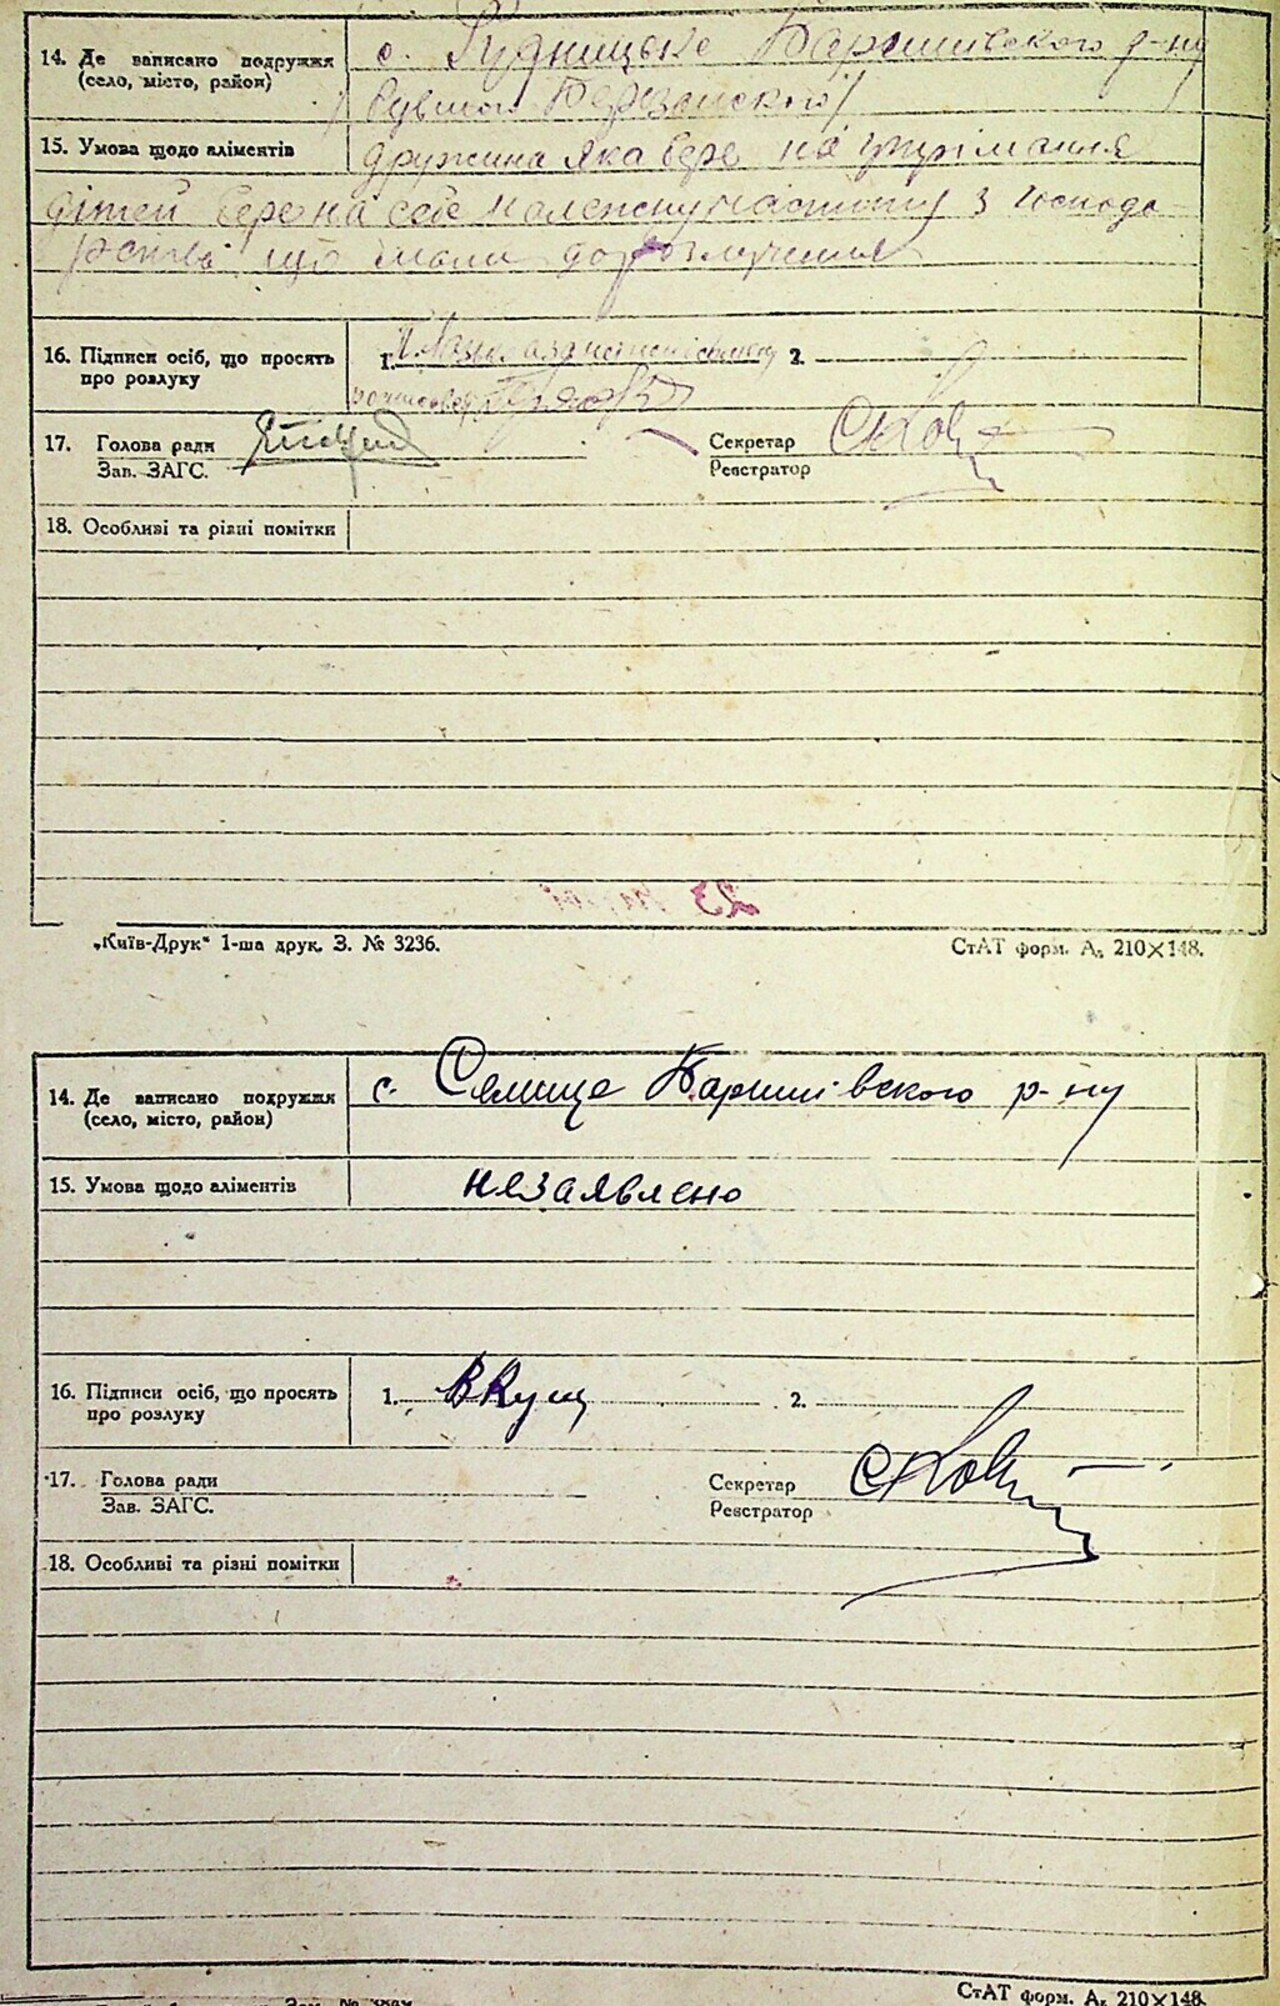 14. Де записано подружжя с. Рудницьке Баришивського р-ну
(село, місто, район) /бувшого Березанского/
15. Умова щодо аліментів дружина яка бере на утримання
дітей бере на себе належну частину з господа-
рства що мали до розлучення
16. Підписи осіб, що просять 1. 2.
про розлуку
17. Голова ради Секретар
Зав. ЗАГС. Реєстратор
18. Особливі та різні помітки
„Київ-Друк“ 1-ша друк. З. № 3236. СтАТ форм. А₅ 210×148.
14. Де записано подружжя с. Селище Баришівского р-ну
(село, місто, район)
15. Умова щодо аліментів незаявлено
16. Підписи осіб, що просять 1. ВКущ 2.
про розлуку
17. Голова ради Секретар
Зав. ЗАГС. Реєстратор
18. Особливі та різні помітки
СтАТ форм. А₅ 210×148